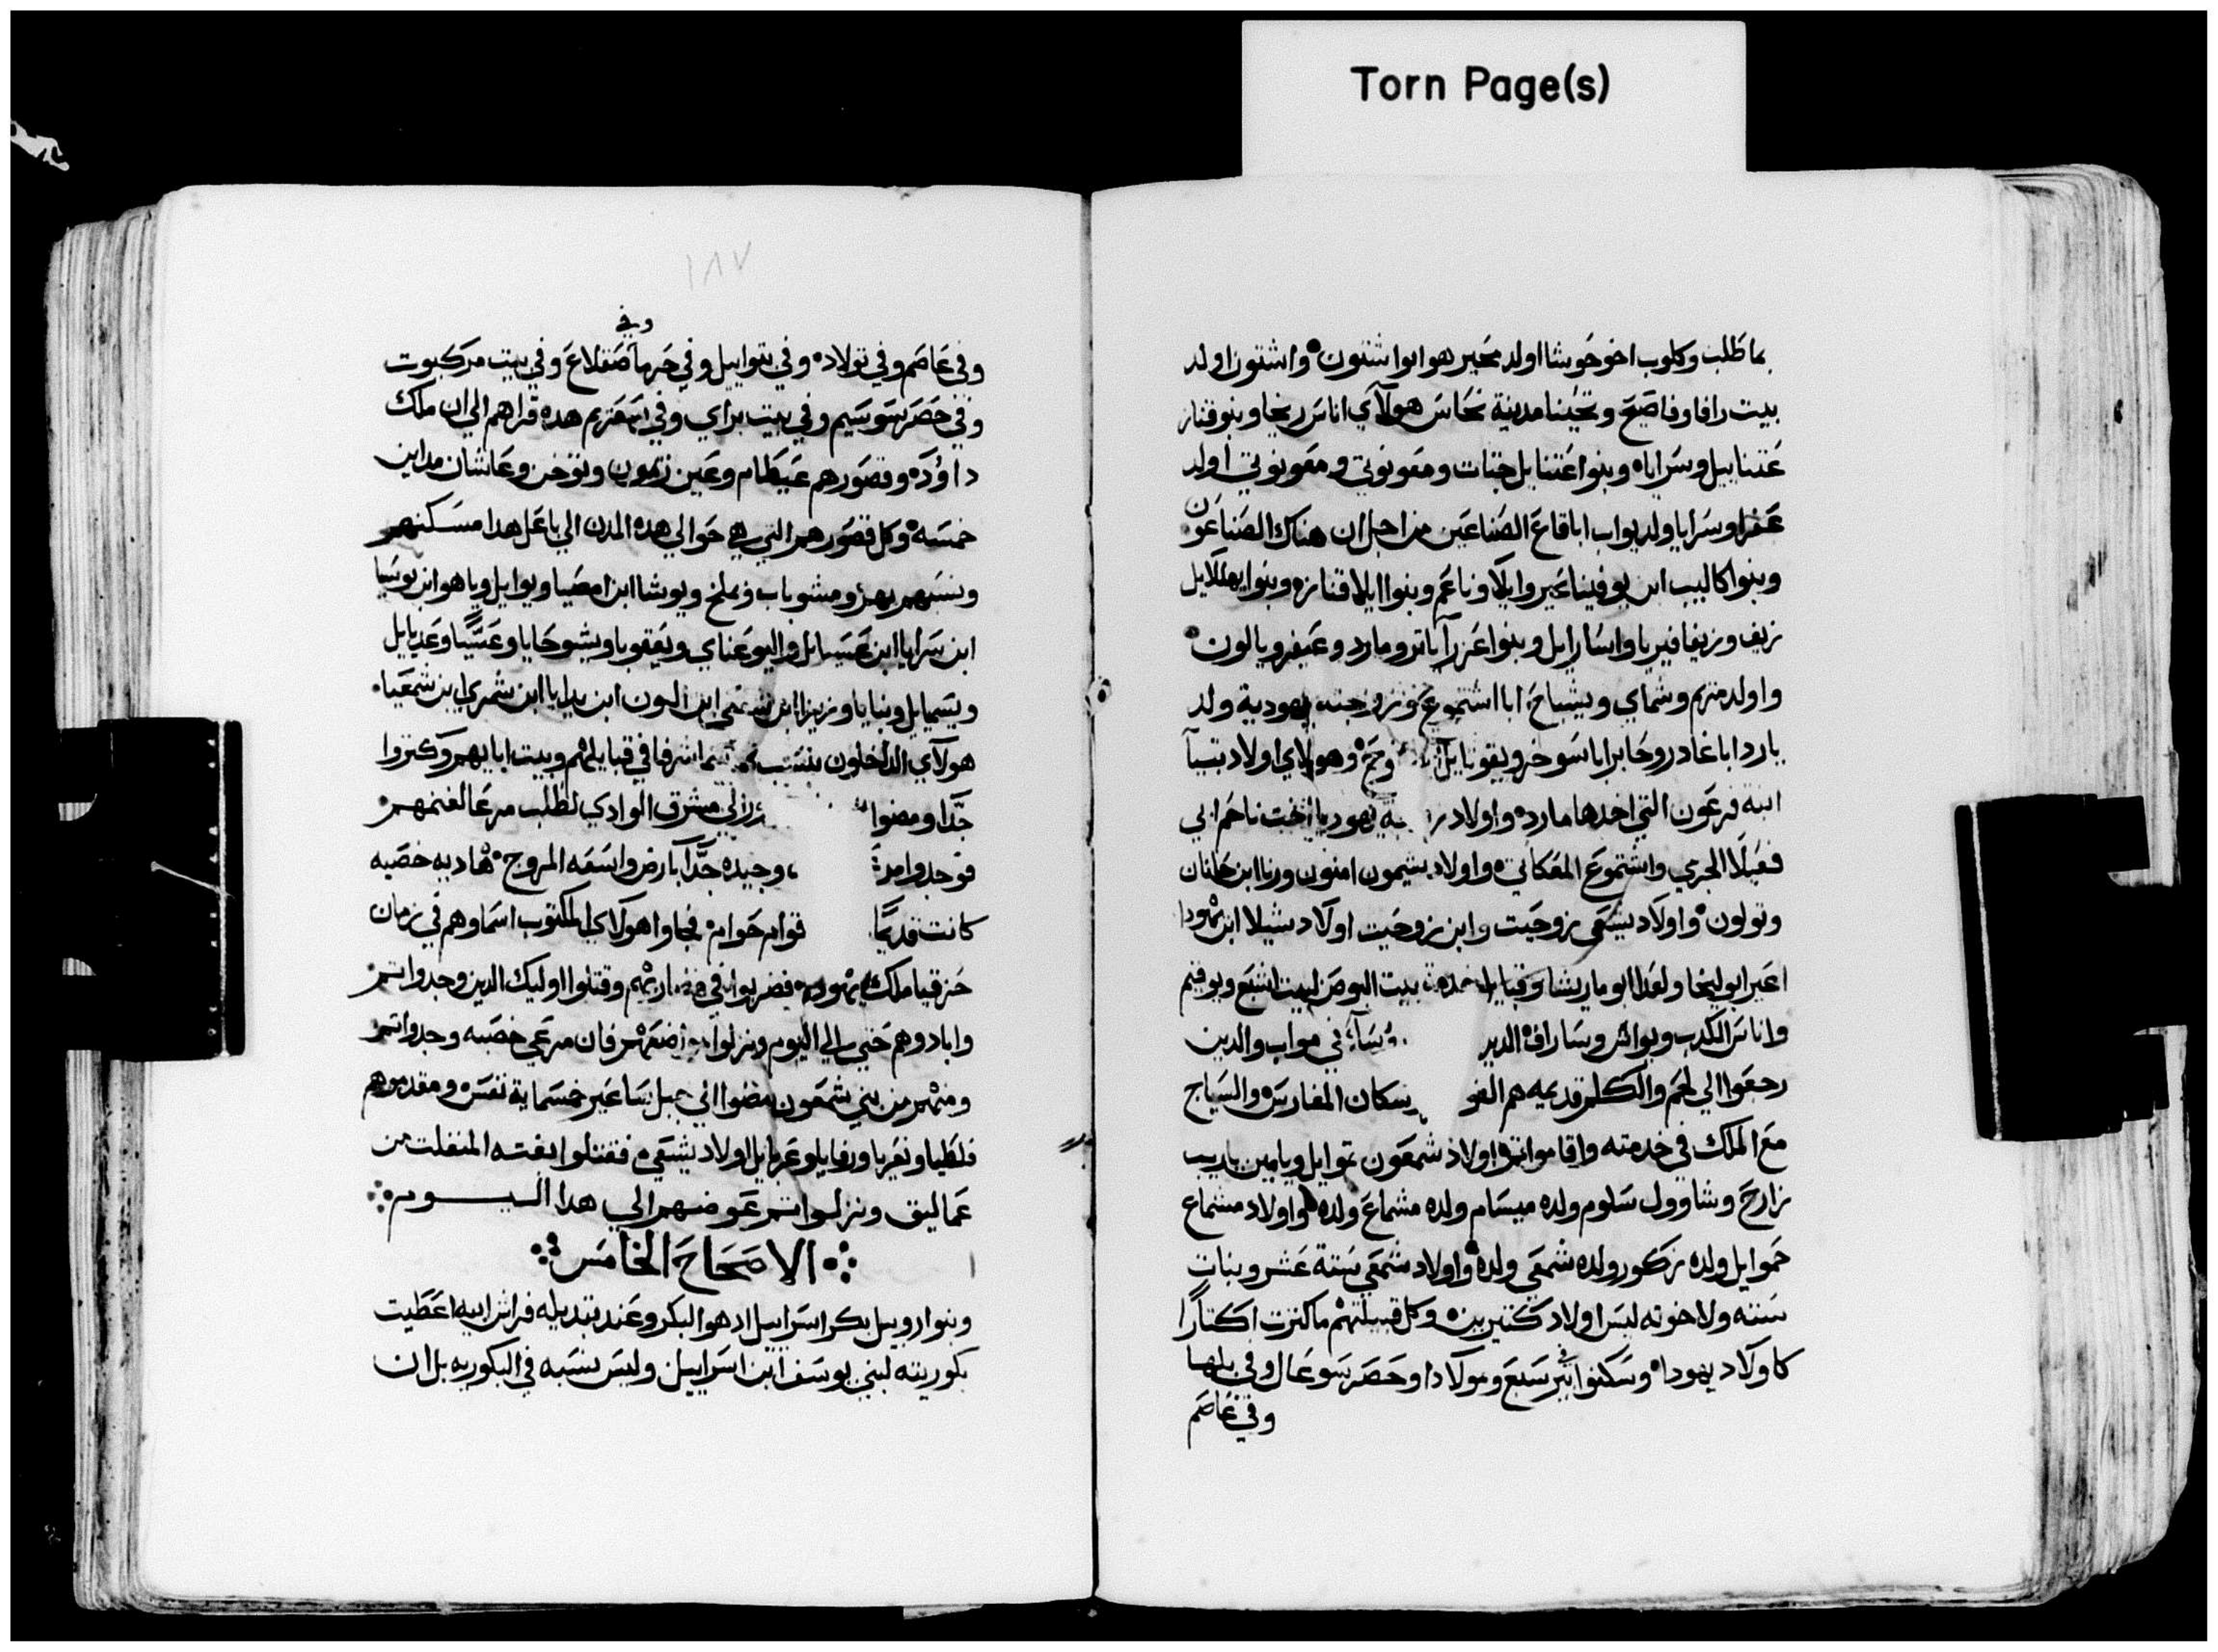 Torn Page(s)
بما طلب وكلوب اخو حوشا اولد محير هو ابوا شتون واشتون اولد
بيت رافا وفاصيح وتحينا مدينة نحاس هولآي اناس ريخا وبنو قناز
عتنابيل وسراياه وبنوا عتنابل حتات ومعونوتي ومعونوتي اولد
عفرا وسرايا ولد يواب ابا قاع الصناعين من اجل ان هناك الصناعون
وبنوا كاليب ابن يوفينا عير وايلا وناعم وبنوا ايلا قنازه وبنوا يهللايل
زيف وزيفا فيريا واسارايل وبنوا عزرآ ياتر ومارد وعيفر ويالون
واولد مريم وشماي ويشباح ابا اشتموع وزوجته يهودية ولد
يارد ابا غادر وحابر ابا سوخر ويقوتايل وهولاي اولاد بتيا
ابنة فرعون التي اخدها مارده واولاد يهوديا اخت ناحم ابي
فعيلا الجرمي واشتموع المعكاتي واولاد شيمون امنون ورنا ابن حانان
وتولون واولاد يشعي زوحيت وابن زوحيت اولاد شيلا ابن يهودا
اعير ابو ليخا ولعدا ابو ماريشا وقبايل خدمة بيت البوص لبيت اشبع ويوقيم
واناس الكدب ويواش وساراف الدين في مواب والدين
رجعوا الي لحم والكلم قديمه هم سكان المغارس والسياج
مع الملك في خدمته واقاموا تم اولاد شمعون نموايل ويامين ياريب
زارح وشاوول سلوم ولده ميسام ولده مشماع ولده واولاد مشماع
حموايل ولده زكور ولده شمعي ولده واولاد شمعي ستة عشر وبنات
سته ولاخوته ليس اولاد كتيرين وكل قبيلتهم ما كترت اكتارا
كاولاد يهودا وسكنوا في بير سبع ومولادا وحصر سوعال وفي بلها
وفي عاصم
١٨٧
وفي
وفي عاصم وفي تولاد وفي بتواييل وفي حرما صقلاع وفي بيت مركبوت
وفي حصر سوسيم وفي بيت براي وفي شعريم هده قراهم الي ان ملك
داوود وقصورهم عيطام وعين رمون وتوخن وعاشان مداين
خمسه وكل قصورهم التي هي حوالي هده المدن الي باعل هدا مسكنهم
ونسبهم بهم ومشوباب ويملخ ويوشا ابن امصيا ويوايل وياهو ابن يوسيا
ابن سرايا ابن عسيايل واليوعناي ويعقوبا ويشوحايا وعسيا وعديايل
ويسيمايل وبنايا وزيزا ابن شفعي ابن الون ابن يدايا ابن شمري ابن شمعيا
هولآي الداخلون بنسب شرفا في قبايلهم وبيت ابايهم وكتروا
جدا ومضوا مشرق الوادي لطلب مرعا لغنمهم
فوجدوا وجيده جدا بارض واسعه المروج هاديه خصبه
كانت قديما قوام حوام فجاوا هولاي المكتوب اسماوهم في زمان
حزقيا ملك يهودا فضربوا في مضاربهم وقتلوا اوليك الدين وجدوا تم
وابادوهم حتي الي اليوم ونزلوا موضعهم فان مرعي خصبه وجدوا تم
ومنهم من بني شمعون مضوا الي جبل ساعير خمسماية نفس ومقدموهم
فلطيا ونعريا ورفايا وعزيايل اولاد يشعي فقتلوا بقية المنفلت من
عماليق ونزلوا تم عوضهم الي هدا اليوم
الاصحاح الخامس
وبنوا روبيل بكر اسراييل اد هو البكر وعند تبديله فراش ابيه اعطيت
بكوريته لبني يوسف ابن اسراييل وليس نسبه في البكوريه بل ان